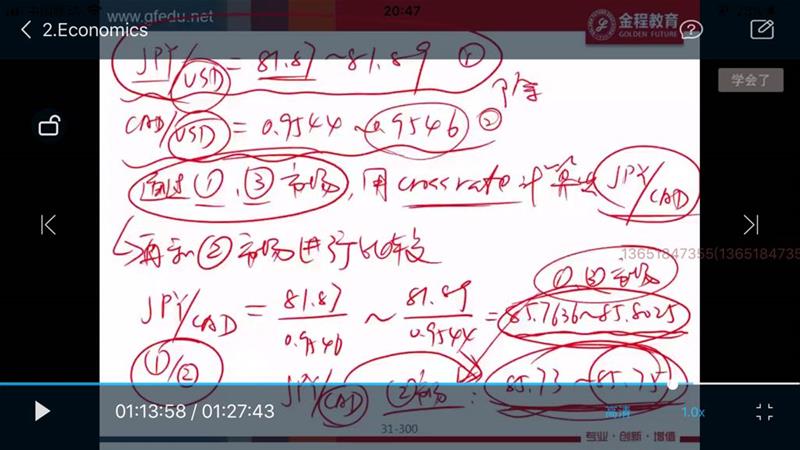 20:47
www.gfedu.net
2.Economics
金程教育
GOLDEN FUTURE
学会了
JPY/USD = 81.87 ~ 81.89 ①
CAD/USD = 0.9544 ~ 0.9546 ②
通过①、③市场, 用 cross rate 计算出 JPY/CAD
再和②市场进行比较
13651847355(1365184735
①、③市场
JPY/CAD = 81.87/0.9546 ~ 81.89/0.9544 = 85.7636~85.8025
①/②
JPY/CAD ②市场: 85.73 ~ 85.75
01:13:58 / 01:27:43
高清
1.0x
31-300
专业·创新·增值